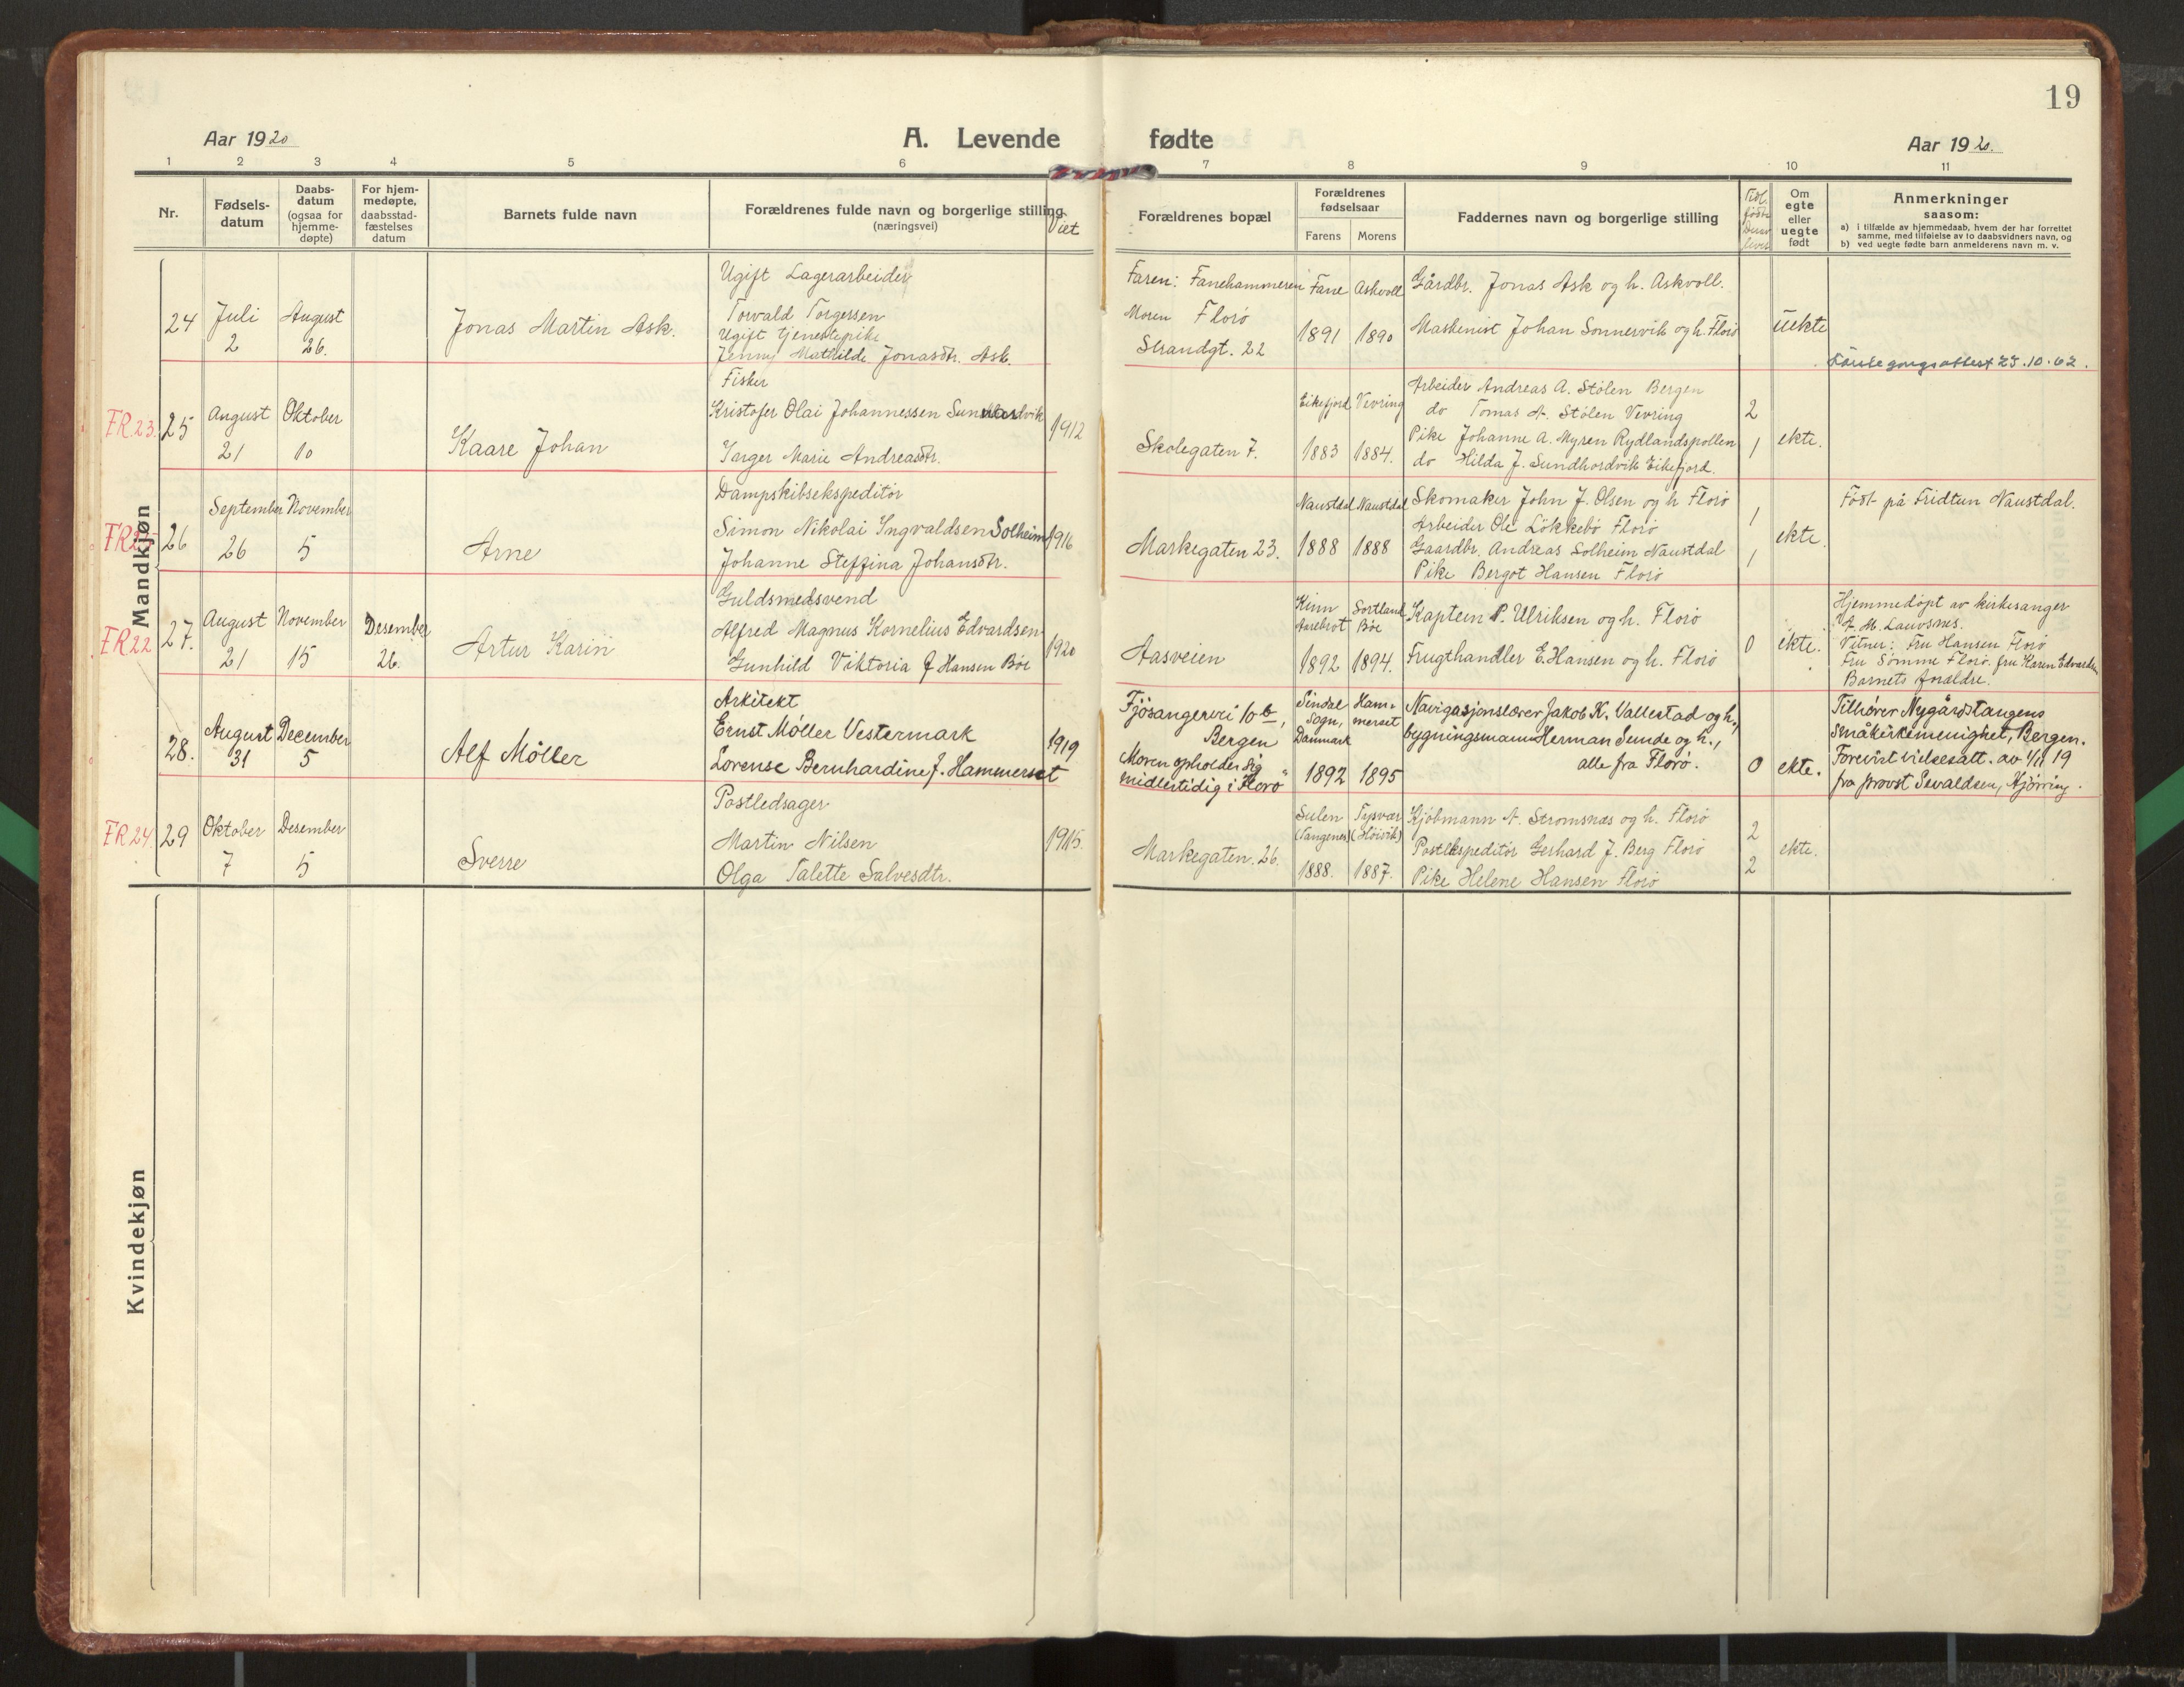 19
Aar 1920
A. Levende fødte
Aar 1920.
1 2 3 4 5 6 7 8 9 10 11
Nr.
Fødsels-
datum
Daabs-
datum
(ogsaa for
hjemme-
døpte)
For hjem-
medøpte,
daabsstad-
fæstelses
datum
Barnets fulde navn
Forældrenes fulde navn og borgerlige stilling
(næringsvei)
Viet
Forældrenes bopæl
Forældrenes
fødselsaar
Farens Morens
Faddernes navn og borgerlige stilling
Om
egte
eller
uegte
født
Anmerkninger
saasom:
a) i tilfælde av hjemmedaab, hvem der har forrettet
samme, med tilføielse av to daabsvidners navn, og
b) ved uegte fødte barn anmelderens navn m. v.
Mandkjøn
24
Juli
2
August
26.
Jonas Martin Ask.
Ugift Lagerarbeider
Torvald Torgersen
Ugift tjenestepike
Jenny Mathilde Jonasdtr. Ask.
Faren: Fanehammeren
Moren Florö
Strandgt. 22
Fane
1891
Askvoll
1890
Gårdbr. Jonas Ask og h. Askvoll.
Maskinist Johan Sonnervik og h. Florö
uekte
25.10.62.
FR.23.
25
August
21
Oktober
10
Kaare Johan
Fisker
Kristofer Olai Johannessen Sundhordvik
Inger Marie Andreasdtr.
1912
Skolegaten 7.
Eikefjord
1883
Vevring
1884.
Arbeider Andreas A. Stölen Bergen
do Tomas A. Stölen Vevring
Pike Johanne A. Myren Rydlandspollen
do Hilda J. Sundhordvik Eikefjord.
2
1
ekte.
26
September
26
November
5
Arne
Dampskibsekspeditör
Simon Nikolai Ingvaldsen Solheim
Johanne Steffina Johansdtr.
1916
Markegaten 23.
Naustdal
1888
Naustdal
1888
Skomaker John J. Olsen og h Florö
Arbeider Ole Lökkebö Florö
Gaardbr. Andreas Solheim Naustdal
Pike Bergot Hansen Florö
1
1
ekte.
Född på Fridtun Naustdal.
FR22
27.
August
21
November
15
Desember
26.
Artur Karin
Guldsmedsvend
Alfred Magnus Kornelius Edvardsen
Gunhild Viktoria f Hansen Böe
1920
Aasveien
Kinn
Aarebrot
1892
Sortland
Böe
1894.
Kaptein P. Ulriksen og h. Florö
Frugthandler E. Hansen og h. Florö
0
ekte.
Hjemmedöpt av kirkesanger
A. M. Lauvsnes.
Vitner: Fru Hansen Florö
Fru Sömme Florö. fru Karen Edvardsen
Barnets forældre.
28.
August
31
December
5
Alf Møller
Arkitekt
Ernst Møller Vestermark
Lorense Bernhardine f. Hammerset
1919
Fjøsangervei 10 b,
Bergen
Moren opholder sig
midlertidig i Florø
Sindal
Sogn,
Danmark
1892
Ham-
merset
1895
Navigasjonslærer Jakob K. Vallestad og h.,
bygningsmann Herman Sunde og h.,
alle fra Florø.
0
ekte.
Tilhører Nygårdstangens
småkirkemenighet, Bergen.
Forevist vielsesatt. av 1/11 19
fra provst Sevaldsen, Hjørring.
FR24.
29
Oktober
7
Desember
5
Sverre
Postledsager
Martin Nilsen
Olga Talette Salvesdtr.
1915.
Markegaten. 26.
Sulen
(Tangenes)
1888.
Tysvær
(Höivik)
1887.
Kjöbmann A. Strömsnæs og h. Florö
Postekspeditör Gerhard J. Berg Florö
Pike Helene Hansen Florö
2
2
ekte.
Kvindekjøn